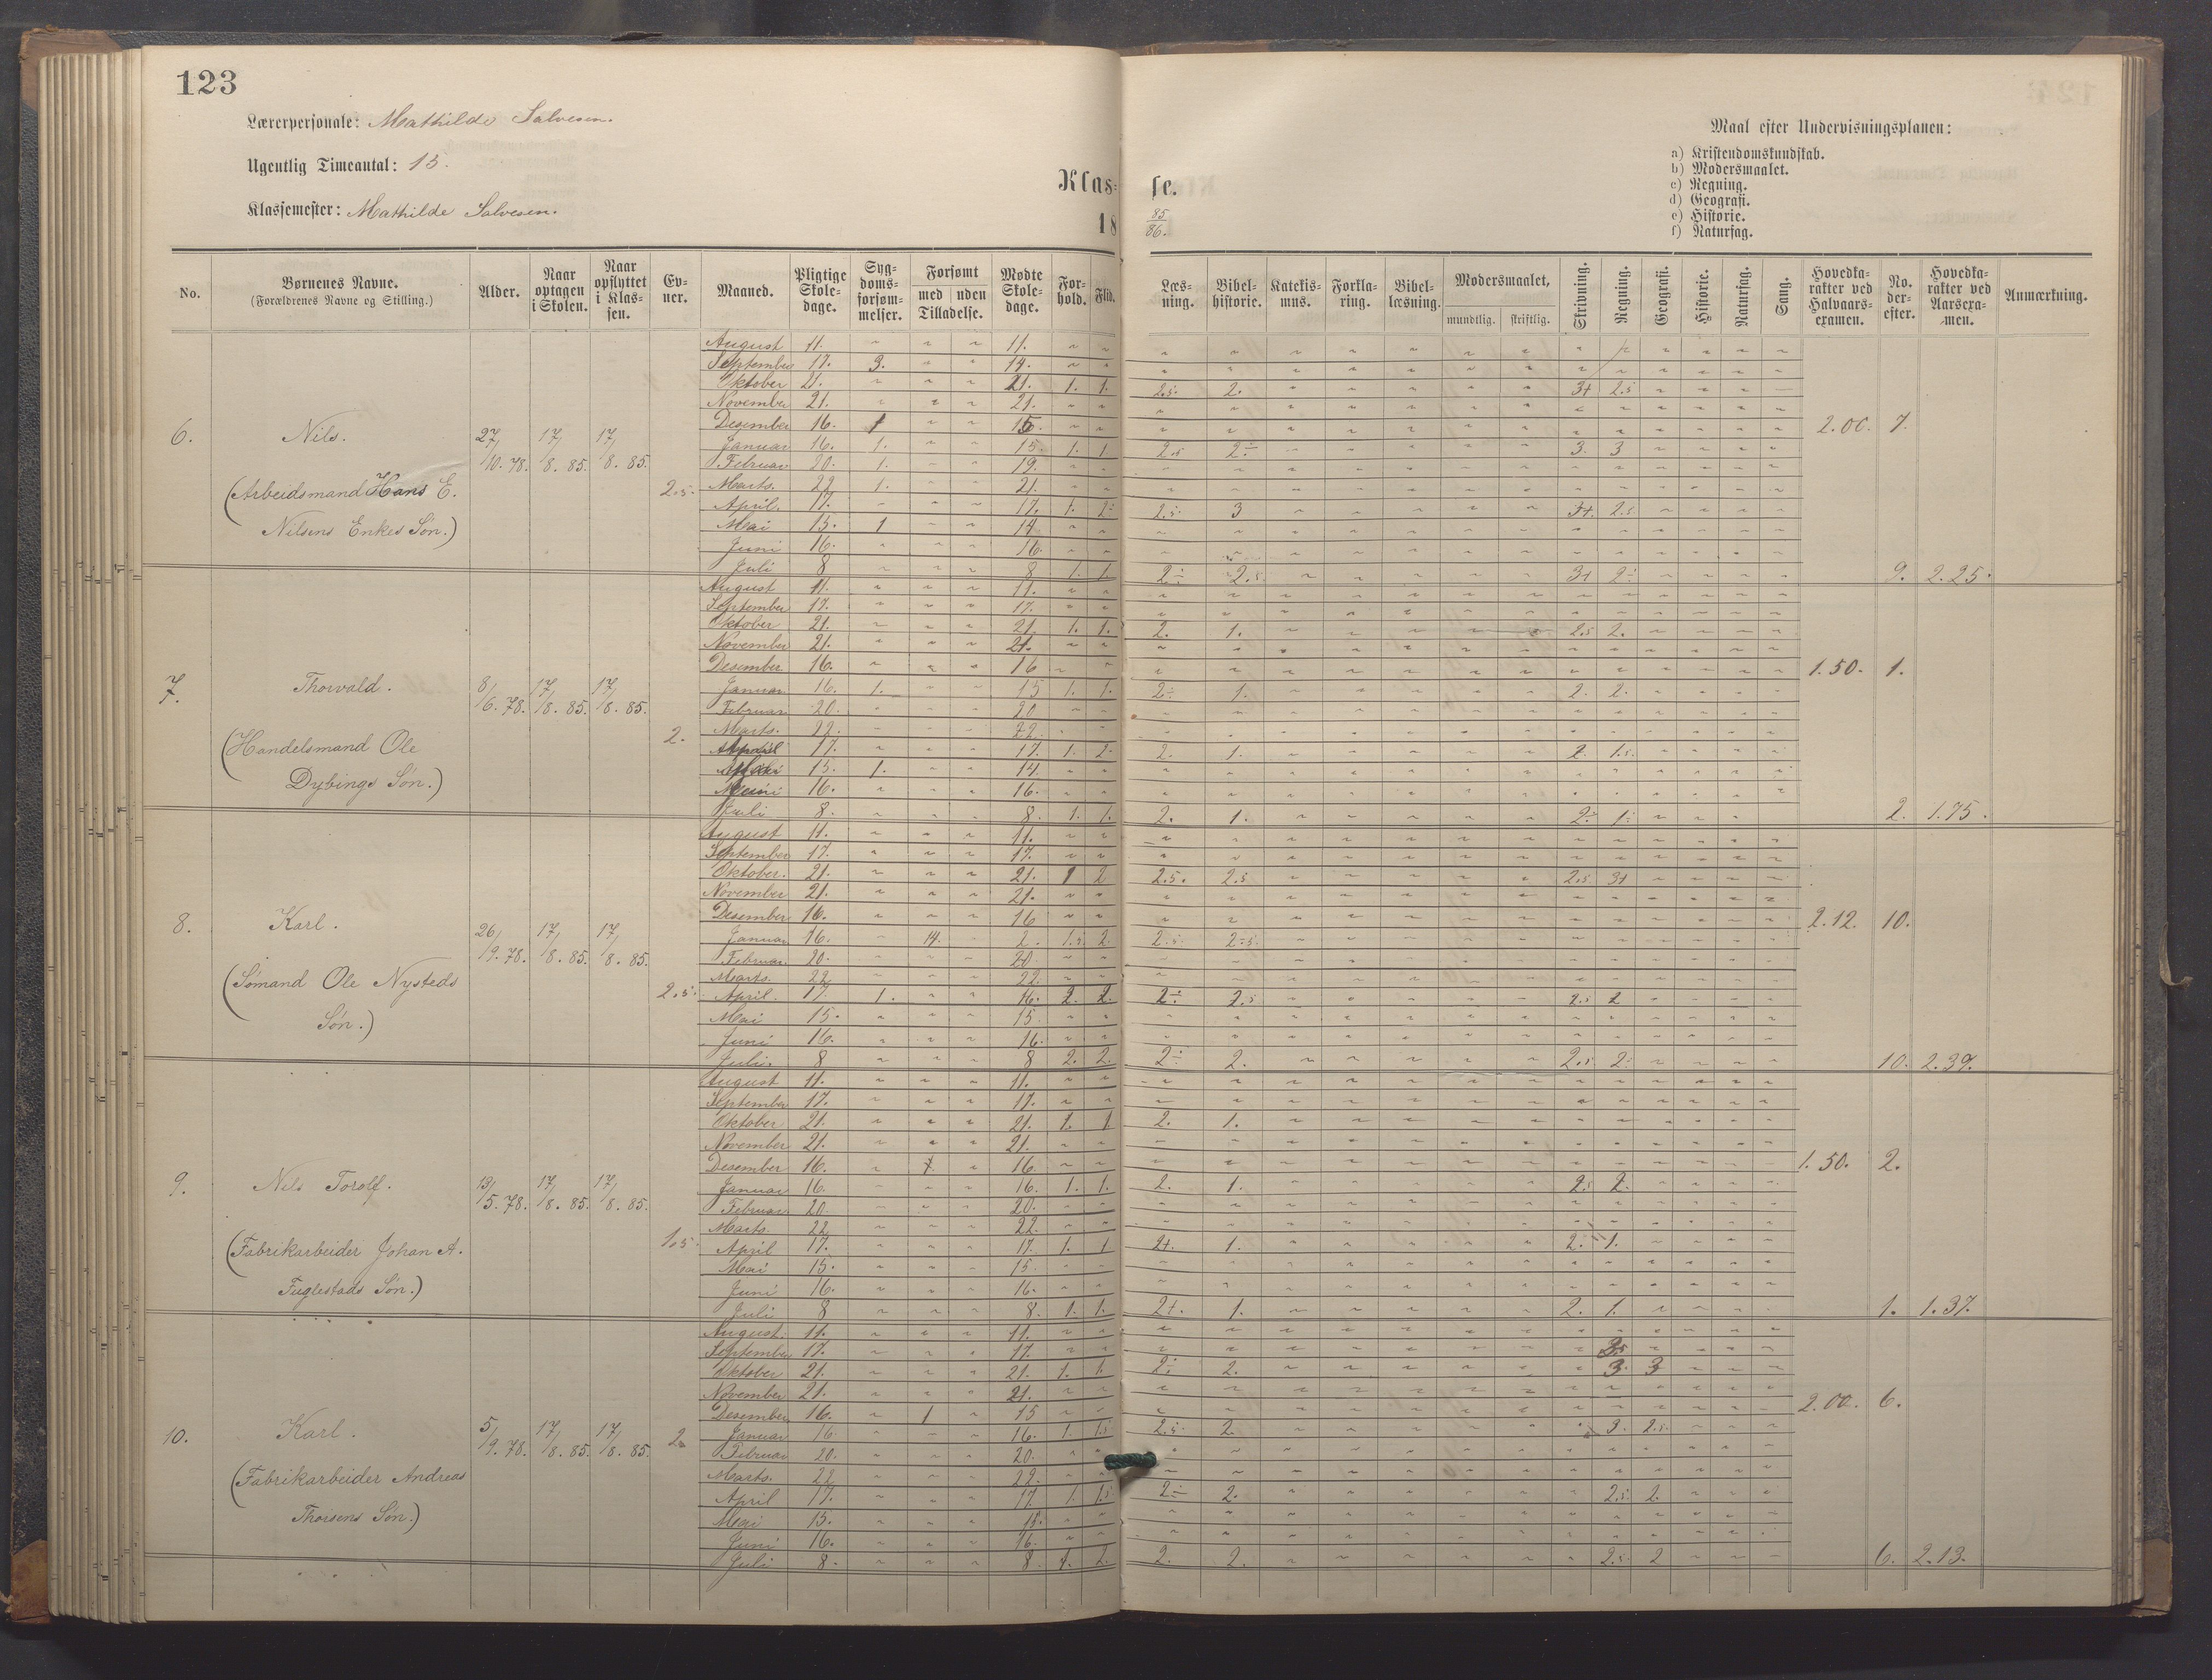 123
Lærerpersonale: Mathilde Salvesen.
Ugentlig Timeantal: 15.
Klassemester: Mathilde Salvesen.
Klasse.
1885/86.
Maal efter Undervisningsplanen:
a) Kristendomskundskab.
b) Modersmaalet.
c) Regning.
d) Geografi.
e) Historie.
f) Naturfag.
No. Børnenes Navne. (Forældrenes Navne og Stilling.) Alder. Naar optagen i Skolen. Naar opflyttet i Klassen. Evner. Maaned. Pligtige Skoledage. Sygdomsforsømmelser. Forsømt med uden Tilladelse. Mødte Skoledage. Forhold. Flid. Læsning. Bibelhistorie. Katekismus. Forklaring. Bibellæsning. Modersmaalet, mundtlig. skriftlig. Skrivning. Regning. Geografi. Historie. Naturfag. Sang. Hovedkarakter ved Halvaarsexamen. No. derefter. Hovedkarakter ved Aarsexamen. Anmærkning.
6. Nils. 27/10.78. 17/8.85. 17/8.85. 2.5.
(Arbeidsmand Hans E.
Nilsens Enkes Søn.)
August 11. 11.
September 17. 3. 14.
Oktober 21. 21. 1. 1. 2.5. 2. 3+ 2.5
November 21. 21.
Desember 16. 1 15. 2.00. 7.
Januar 16. 1. 15. 1. 1 2.5 2÷ 3. 3
Februar 20. 1. 19.
Marts. 22 1. 21.
April. 17. 17. 1. 2.5. 3 2.5
Mai 15. 1 14
Juni 16. 16.
Juli 8 8 1. 1. 2÷ 2.5. 3+ 2÷ 9. 2.25.
7. Thorvald. 8/6.78. 17/8.85. 17/8.85. 2.
(Handelsmand Ole
Dybings Søn.)
August 11. 11.
September 17. 17.
Oktober 21. 21. 1. 1. 2. 1. 2.5 2.
November 21. 21.
Desember 16. 16 1.50. 1.
Januar 16. 1. 15 1. 1. 2÷ 1. 2. 2.
Februar 20. 20
Marts. 22. 22.
April 17. 17. 1. 2. 2. 1. 2. 1.5.
Mai 15. 1. 14.
Juni 16. 16.
Juli 8. 8. 1. 1. 2. 1. 2÷ 1÷ 2. 1.75.
8. Karl. 26/9.78. 17/8.85. 17/8.85. 2.5.
(Sømand Ole Nysteds
Søn.)
August 11. 11.
September 17. 17.
Oktober. 21. 21. 1 2 2.5. 2.5 2.5 3+
November 21. 21.
Desember 16. 16 2.12. 10.
Januar 16. 14. 2. 1.5 2. 2.5. 2.5.
Februar 20. 20
Marts. 22 22.
April. 17. 1. 16. 2. 2. 2÷ 2.5. 2.5 2
Mai 15. 15.
Juni 16. 16.
Juli. 8 8 2. 2. 2÷ 2. 2.5 2÷ 10. 2.39.
9. Nils Torolf. 13/5.78. 17/8.85. 17/8.85. 1.5.
(Fabrikarbeider Johan A.
Fuglestads Søn.)
August 11. 11.
September 17. 17.
Oktober 21. 21. 1. 1 2. 1.
November 21. 21.
Desember 16. 16. 1.50. 2.
Januar 16. 16. 1. 1. 2. 1. 2.5 2.
Februar 20. 20.
Marts. 22 22.
April 17. 17. 1. 1 2+. 1. 2. 1.
Mai 15. 15.
Juni 16. 16.
Juli 8 8. 1. 1. 2+. 1. 2. 1. 1. 1.37.
10. Karl. 5/9.78. 17/8.85. 17/8.85. 2
(Fabrikarbeider Andreas
Thorsens Søn.)
August. 11. 11.
September 17. 17.
Oktober 21. 21. 1. 1. 2÷ 2. 3. 3
November 21. 21.
Desember 16. 1 15 2.00. 6.
Januar 16 16. 1. 1.5 2.5. 2. 3. 2.5.
Februar 20. 20.
Marts. 22 22.
April 17. 17. 1. 1.5 2÷ 2. 2.5. 2.
Mai 15. 15.
Juni 16. 16.
Juli 8. 8. 1. 2. 2. 2. 2.5. 2 6. 2.13.